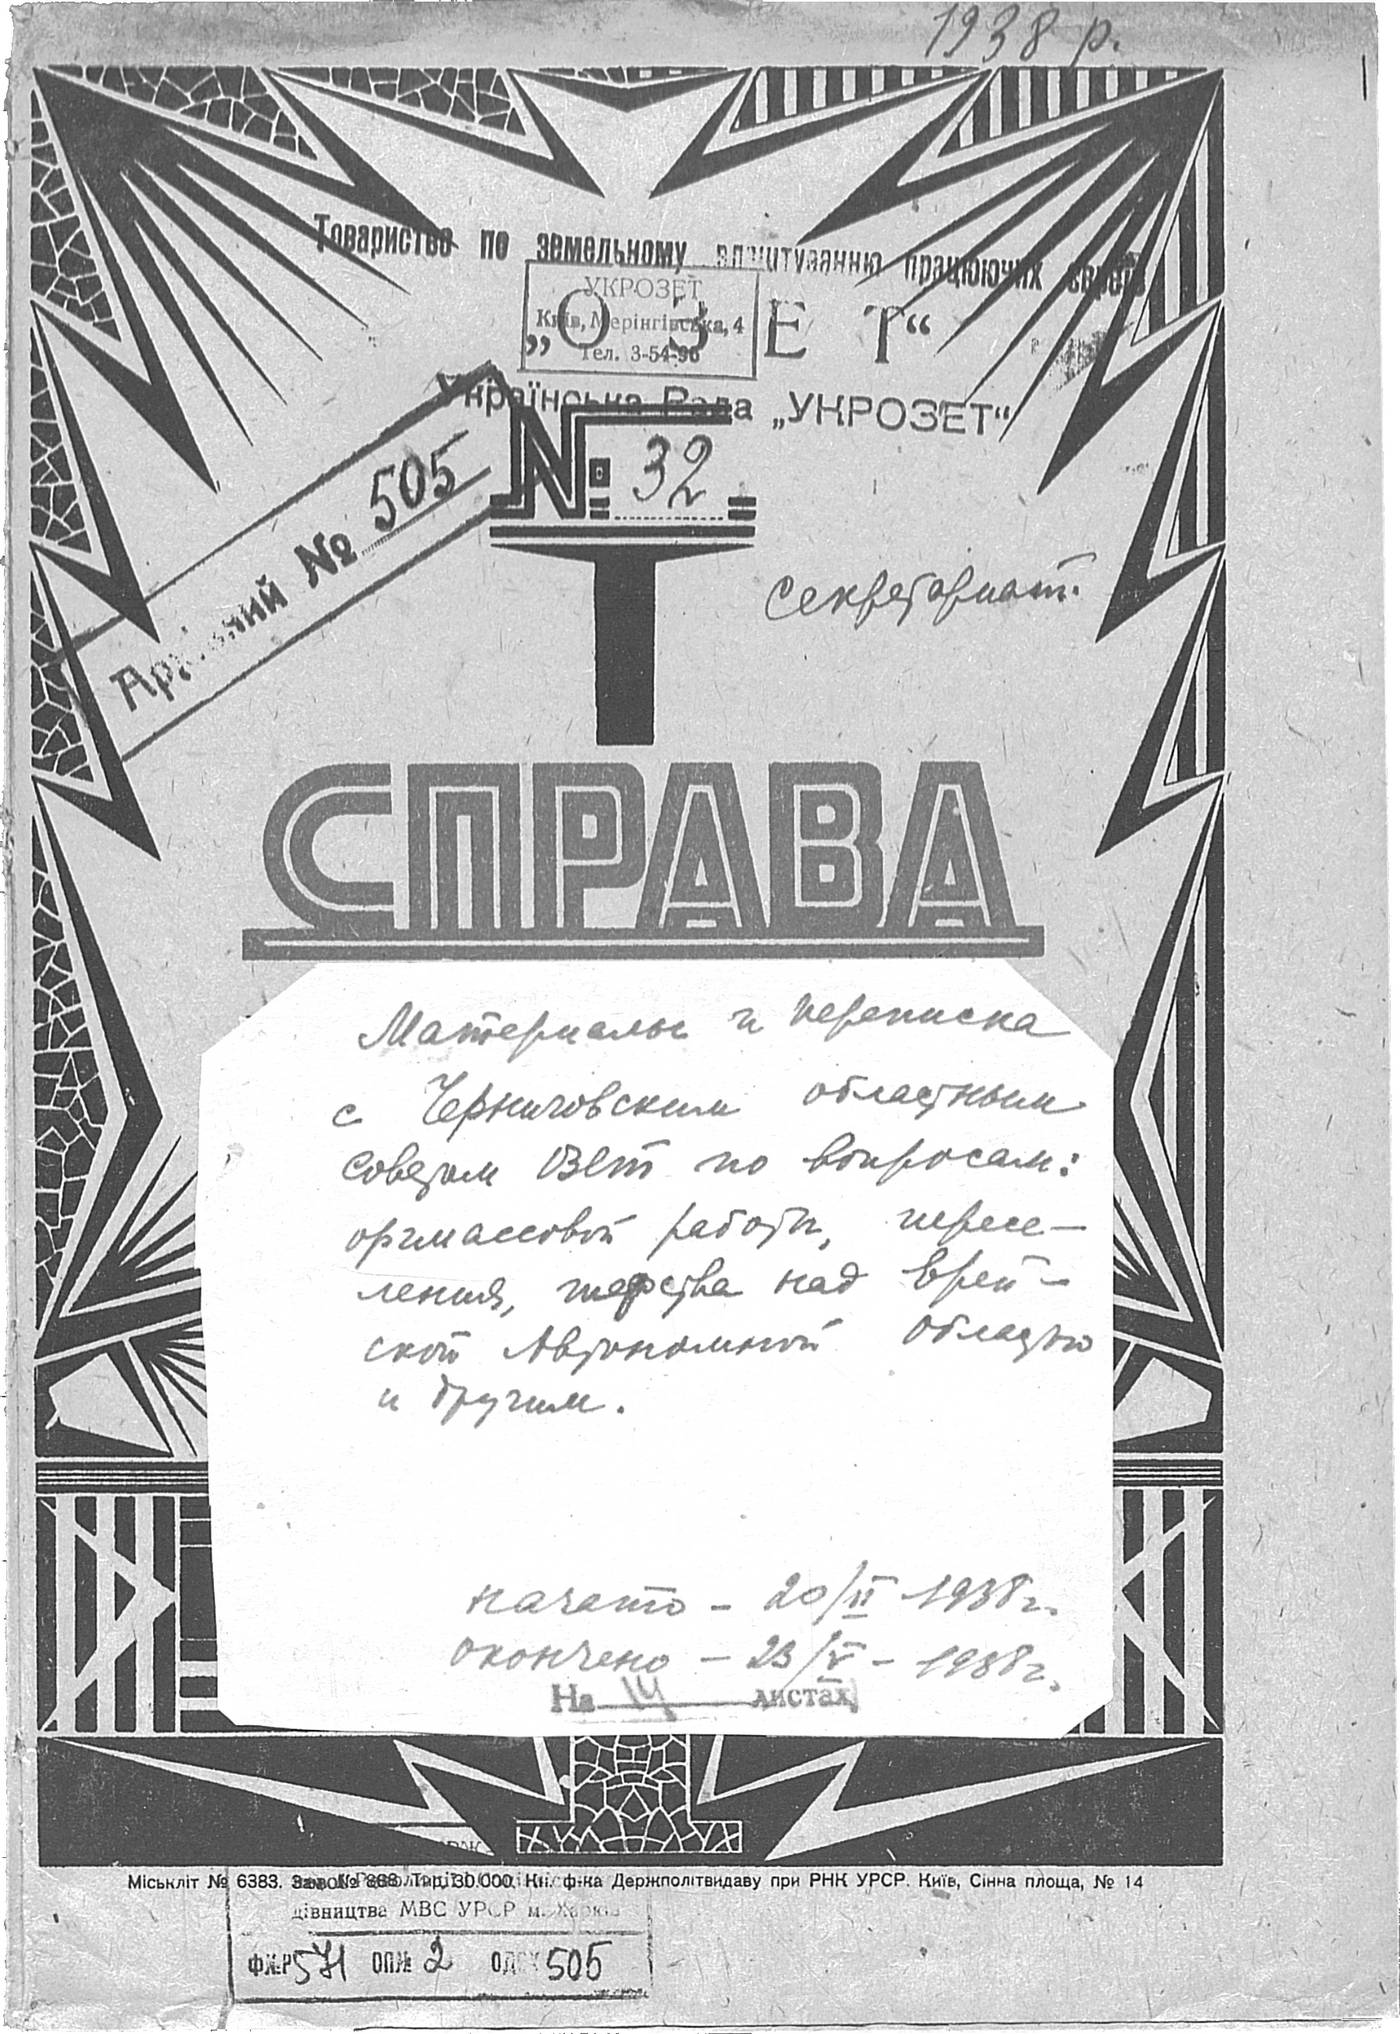 1938 р.
Товариство по земельному влаштуванню працюючих євреїв
УКРОЗЕТ
Київ, Мерінгівська, 4
Тел. 3-54-96
„ОЗЕТ“
Українська Рада „УКРОЗЕТ“
№ 32
Архівний № 505
Секретариат.
СПРАВА
Материалы и переписка
с Черниговским областным
советом ОЗЕТ по вопросам:
оргмассовой работы, пересе-
ления, шефства над Еврей-
ской Автономной Областью
и другим.
начато – 20/II 1938 г.
окончено – 23/V – 1938 г.
На 14 листах
Міськліт № 6383. Зам. № 868. Тир. 30.000. Кн. ф-ка Держполітвидаву при РНК УРСР. Київ, Сінна площа, № 14
дівництва МВС УРСР м. Харків
Ф.№Р 571 ОП№ 2 ОД.ЗХ 505